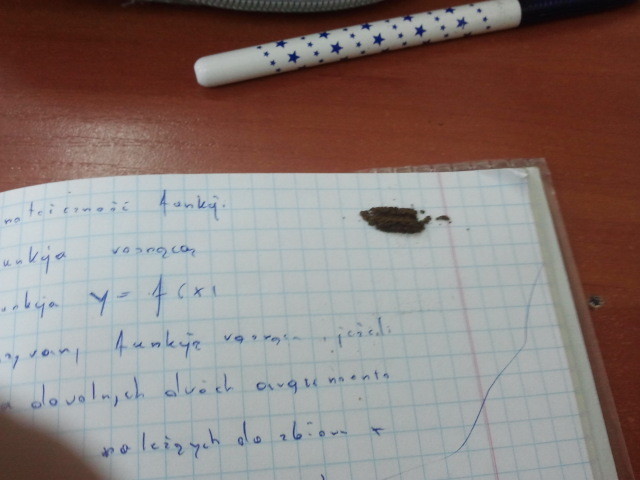 notoniczność funkcji.
unkcja rosnąca
unkcja y = f(x)
funkcję rosnącą, jeżeli
dowolnych dwóch argumentów
należących do zbioru x